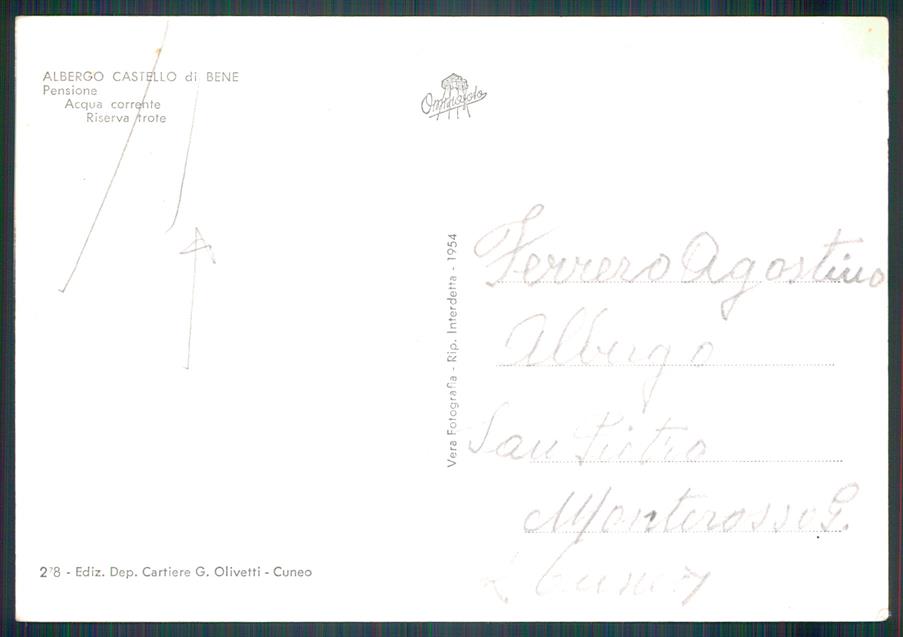 ALBERGO CASTELLO di BENE
Pensione
Acqua corrente
Riserva trote
Vera Fotografia - Rip. Interdetta - 1954
Ferrero Agostino
Albergo
San Pietro
Monterosso G.
(Cuneo)
278 - Ediz. Dep. Cartiere G. Olivetti - Cuneo